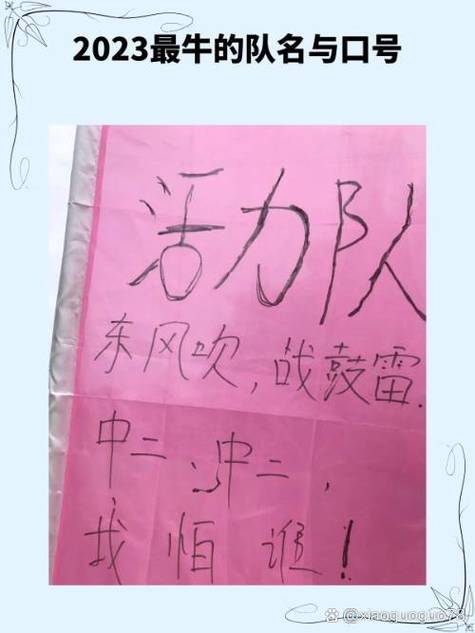 2023最牛的队名与口号
活力队
东风吹，战鼓雷.
中二、中二，
我怕谁！
@xiaoguoguo78